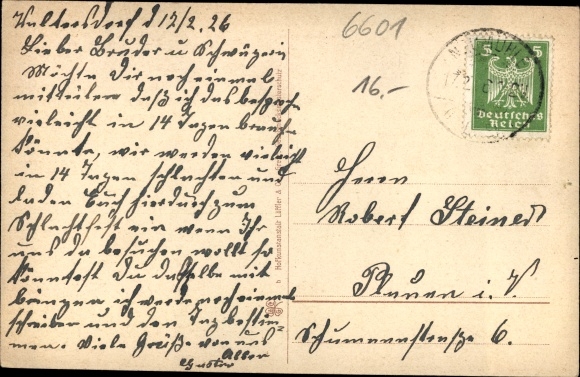 Waltersdorf d 12/2. 26
Lieber Bruder u Schwägerin
Möchte Dir noch einmal
mitteilen daß ich das
vieleicht in 14 Tagen brauchen
könnte, wir werden vieleicht
in 14 Tagen schlachten und
laden Euch hierdurch zum
Schlachtfest ein wenn Ihr
uns da besuchen wollt so
könntest Du dasselbe mit
bringen ich werde noch einmal
schreiben und den Tag bestim-
men. Viele Grüße von uns
Allen
6601
16.-
5 5
Deutsches
Reich
Herrn
Robert
Plauen i. V.
Schumannstraße 6.
Hofkunstanstalt Löffler & Co